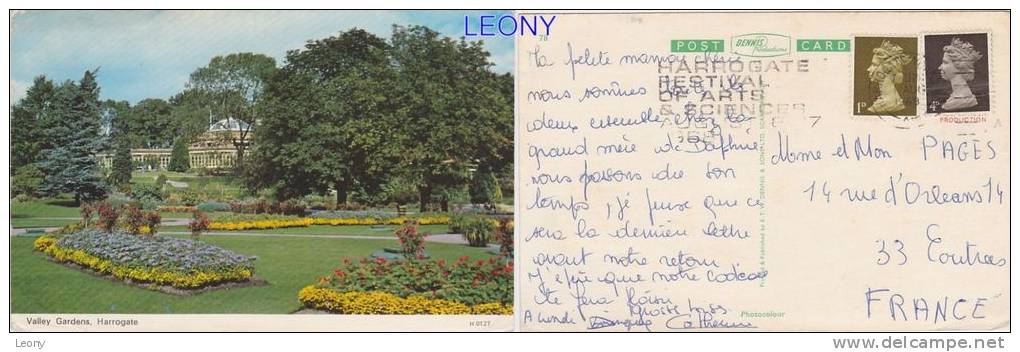 LEONY
Valley Gardens, Harrogate
H 0127
78
POST
DENNIS
Productions
CARD
HARROGATE
FESTIVAL
OF ARTS
& SCIENCES
1D
4D
PRODUCTION
Ma petite maman chérie
nous sommes
deux ensemble chez la
grand mère de Daphné
nous passons du bon
temps, j'pense que ce
sera la dernière lettre
avant notre retour
J'espère que notre cadeau
te fera plaisir
A lundi
Grosses bises
Catherine
Mme et Mon PAGÈS
14 rue d'Orleans 14
33 Coutras
FRANCE
Photocolour
Leony
www.delcampe.net